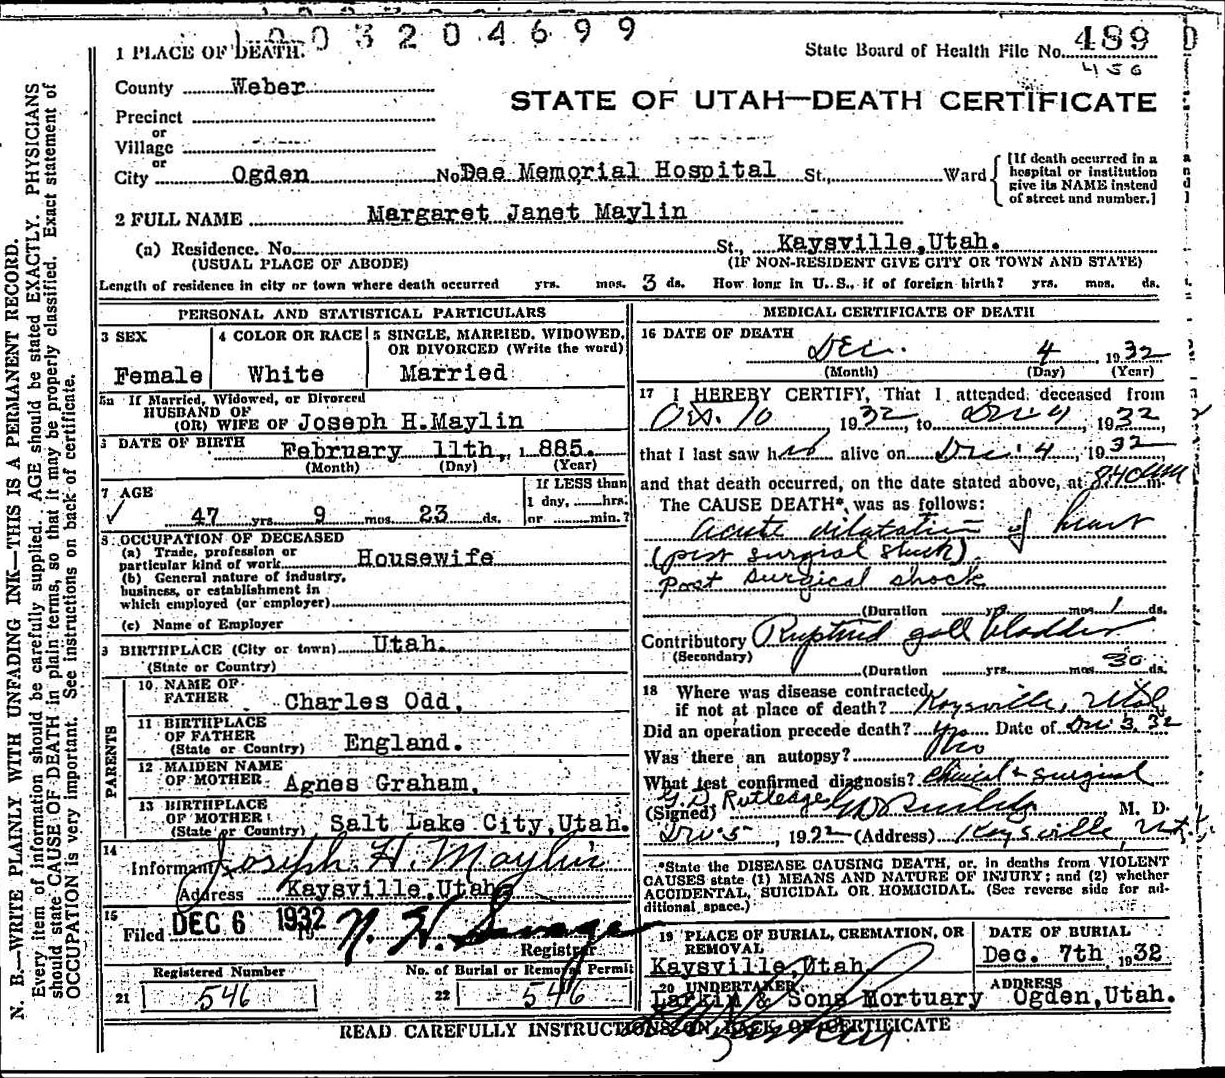 1003204699
1 PLACE OF DEATH.
State Board of Health File No. 489 D
456
County Weber
STATE OF UTAH—DEATH CERTIFICATE
Precinct
or
Village
or
City Ogden No Dee Memorial Hospital St., Ward
[If death occurred in a
hospital or institution
give its NAME instead
of street and number.]
2 FULL NAME Margaret Janet Maylin
(a) Residence. No. St., Kaysville,Utah.
(USUAL PLACE OF ABODE) (IF NON-RESIDENT GIVE CITY OR TOWN AND STATE)
Length of residence in city or town where death occurred yrs. mos. 3 ds. How long in U.S., if of foreign birth? yrs. mos. ds.
PERSONAL AND STATISTICAL PARTICULARS
3 SEX
Female
4 COLOR OR RACE
White
5 SINGLE, MARRIED, WIDOWED,
OR DIVORCED (Write the word)
Married
5a If Married, Widowed, or Divorced
HUSBAND OF
(OR) WIFE OF Joseph H.Maylin
DATE OF BIRTH February 11th, 1885.
(Month) (Day) (Year)
7 AGE
47 yrs. 9 mos. 23 ds.
If LESS than
1 day, hrs.
or min.?
8 OCCUPATION OF DECEASED
(a) Trade, profession or
particular kind of work Housewife
(b) General nature of industry,
business, or establishment in
which employed (or employer)
(c) Name of Employer
9 BIRTHPLACE (City or town) Utah.
(State or Country)
PARENTS
10 NAME OF
FATHER Charles Odd,
11 BIRTHPLACE
OF FATHER
(State or Country) England.
12 MAIDEN NAME
OF MOTHER Agnes Graham,
13 BIRTHPLACE
OF MOTHER
(State or Country) Salt Lake City,Utah.
14
Informant Joseph H. Maylin
Address Kaysville,Utah
15
Filed DEC 6 1932 N. H. Savage
Registrar
Registered Number
21 546
No. of Burial or Removal Permit
22 546
MEDICAL CERTIFICATE OF DEATH
16 DATE OF DEATH
Dec. 4, 1932
(Month) (Day) (Year)
17 I HEREBY CERTIFY, That I attended deceased from
Oct. 10 1932, to Dec 4, 1932,
that I last saw her alive on Dec. 4, 1932
and that death occurred, on the date stated above, at 8:40am m.
The CAUSE DEATH*, was as follows:
acute dilatation of heart
(post surgical shock)
Post surgical shock
(Duration yrs. mos. 1 ds.
Contributory Ruptured gall bladder
(Secondary)
(Duration yrs. mos. 30 ds.
18 Where was disease contracted
if not at place of death? Kaysville, Utah
Did an operation precede death? yes Date of Dec 3, 32
Was there an autopsy? No
What test confirmed diagnosis? Clinical & surgical
G. D. Rutledge
(Signed) GD Rutledge M. D.
Dec 5, 1932 (Address) Kaysville, Ut.
*State the DISEASE CAUSING DEATH, or, in deaths from VIOLENT
CAUSES state (1) MEANS AND NATURE OF INJURY; and (2) whether
ACCIDENTAL, SUICIDAL OR HOMICIDAL. (See reverse side for ad-
ditional space.)
19 PLACE OF BURIAL, CREMATION, OR
REMOVAL
Kaysville,Utah
DATE OF BURIAL
Dec. 7th, 1932
20 UNDERTAKER
Larkin & Sons Mortuary
ADDRESS
Ogden,Utah.
READ CAREFULLY INSTRUCTIONS ON BACK OF CERTIFICATE
N. B.—WRITE PLAINLY WITH UNFADING INK—THIS IS A PERMANENT RECORD.
Every item of information should be carefully supplied. AGE should be stated EXACTLY. PHYSICIANS
should state CAUSE OF DEATH in plain terms, so that it may be properly classified. Exact statement of
OCCUPATION is very important. See instructions on back of certificate.